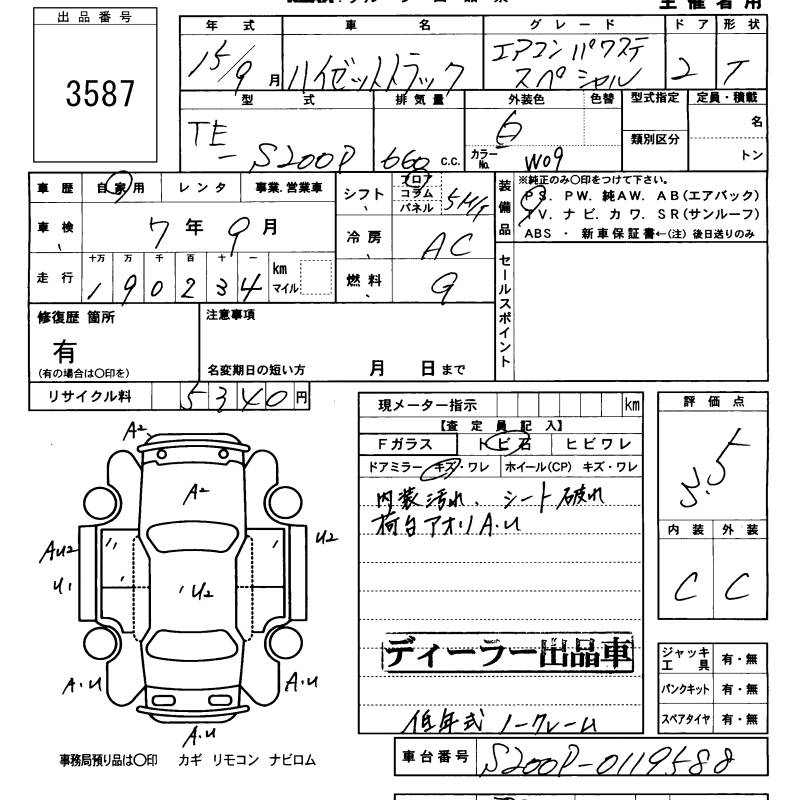 主催者用
出品番号
3587
年式 車名 グレード ドア 形状
15/9月 ハイゼットトラック エアコン パワステ スペシャル 2 T
型式 排気量 外装色 色替 型式指定 定員・積載
TE-S200P 660 c.c. 白 カラーNo. W09 類別区分 名
トン
車歴 自家用 レンタ 事業.営業車
シフト フロア コラム パネル 5M/T
装備品 ※純正のみ〇印をつけて下さい。
PS. PW. 純AW. AB(エアバック)
TV. ナビ. カワ. SR(サンルーフ)
ABS ・ 新車保証書←(注) 後日送りのみ
車検 7年9月
冷房 AC
走行 十万 万 千 百 十 一
190234 km マイル
燃料 G
セールスポイント
修復歴 箇所 注意事項
有
(有の場合は〇印を) 名変期日の短い方 月 日まで
リサイクル料 5340円
現メーター指示 km
【査定員記入】
Fガラス トビ石 ヒビワレ
ドアミラー キズ・ワレ ホイール(CP) キズ・ワレ
内装汚れ、シート破れ
荷台アオリA.U
評価点
3.5
内装 外装
C C
A2
A2
AU2 U2
U1 U2
A.U A.U
A.U
ディーラー出品車
低年式 ノークレーム
ジャッキ工具 有・無
パンクキット 有・無
スペアタイヤ 有・無
事務局預り品は〇印 カギ リモコン ナビロム
車台番号 S200P-0119588